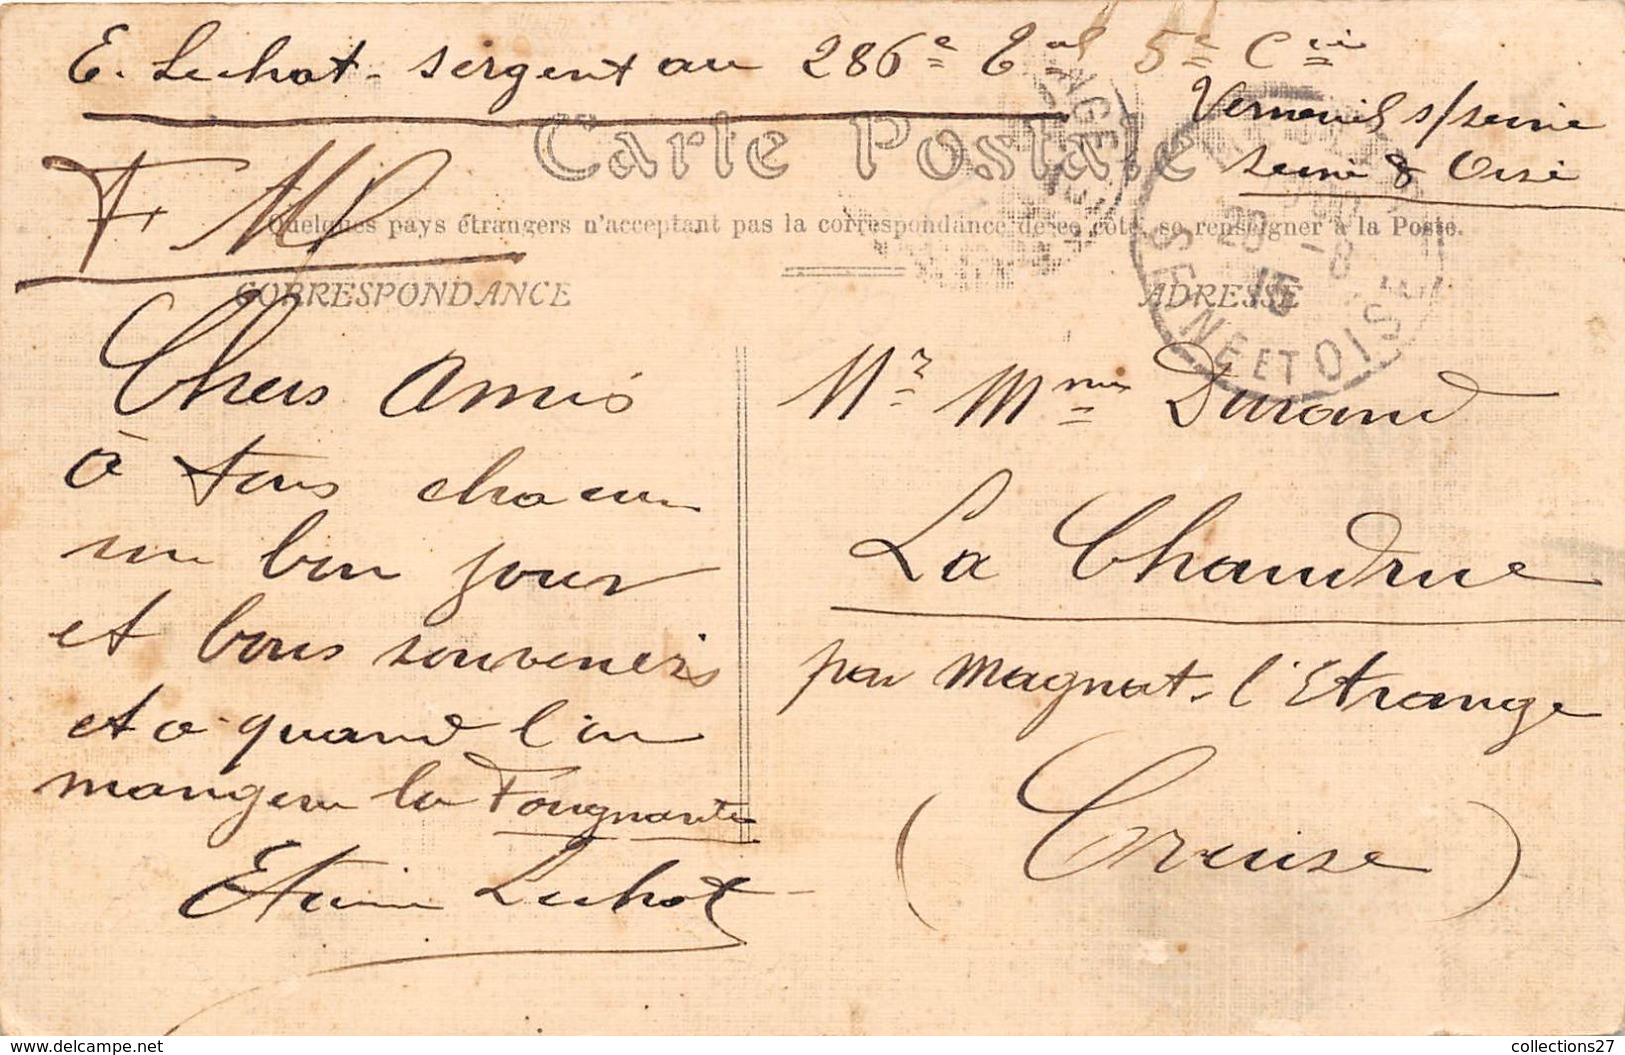 E. Lechat - sergent au 286e Tal 5e Cie
Verneuil s/seine
seine & Oise
Carte Postale
F M
Quelques pays étrangers n'acceptant pas la correspondance de ce côté, se renseigner à la Poste.
CORRESPONDANCE
ADRESSE
20 -8
15
SEINE ET OISE
Chers Amis
à tous chacun
un bon jour
et bons souvenirs
et a quand l'on
mangera la Fougnarte
Etienne Lechat
Mr Mme Durand
La Chaudrue
par Magnat-l'Etrange
(Creuse)
collections27